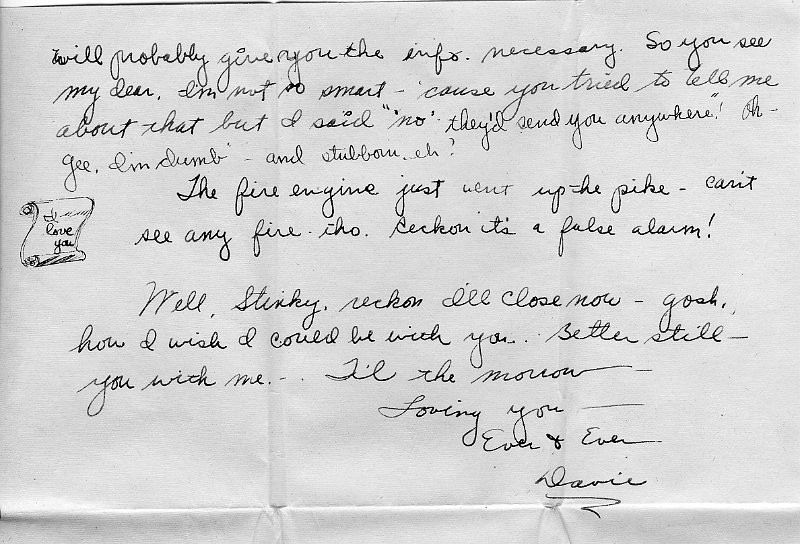 will probably give you the info. necessary. So you see
my dear, I'm not so smart - 'cause you tried to tell me
about that but I said "no" they'd send you anywhere"! Oh -
gee, I'm dumb - and stubborn, eh?
The fire engine just went up the pike - can't
see any fire tho. Reckon it's a false alarm!
I
love
you
Well, Stinky, reckon I'll close now - gosh,
how I wish I could be with you. Better still -
you with me. - . 'Til the morrow -
Loving you -
Ever & Ever
Davie